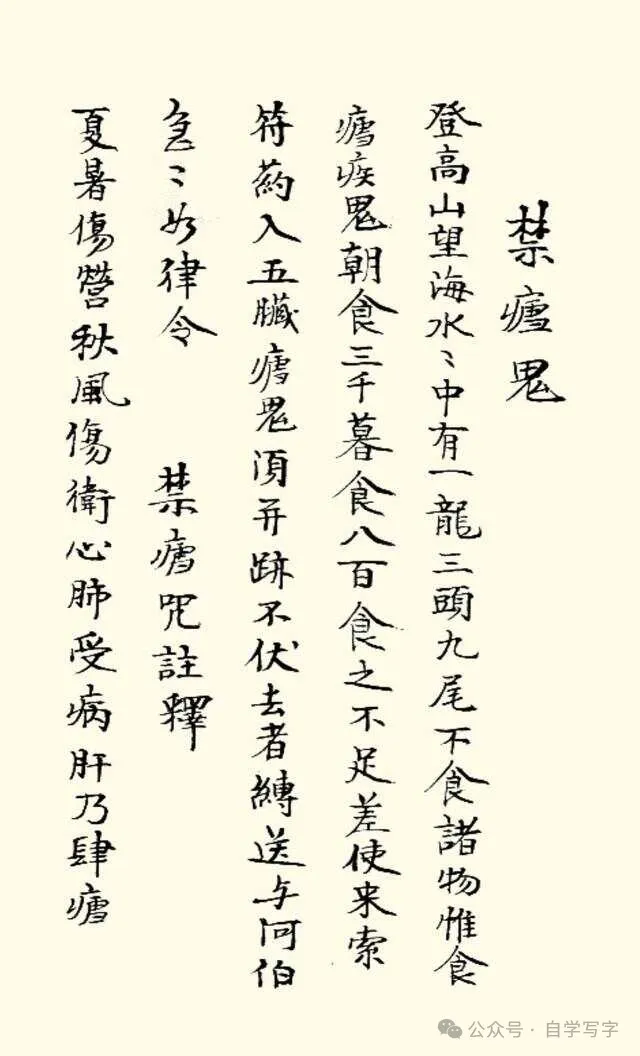 禁瘧鬼
登高山望海水〻中有一龍三頭九尾不食諸物惟食
瘧疾鬼朝食三千暮食八百食之不足差使来索
符药入五臟瘧鬼須并跡不伏去者縛送与河伯
急〻如律令 禁瘧咒註釋
夏暑傷營秋風傷衛心肺受病肝乃肆瘧
公众号·自学写字